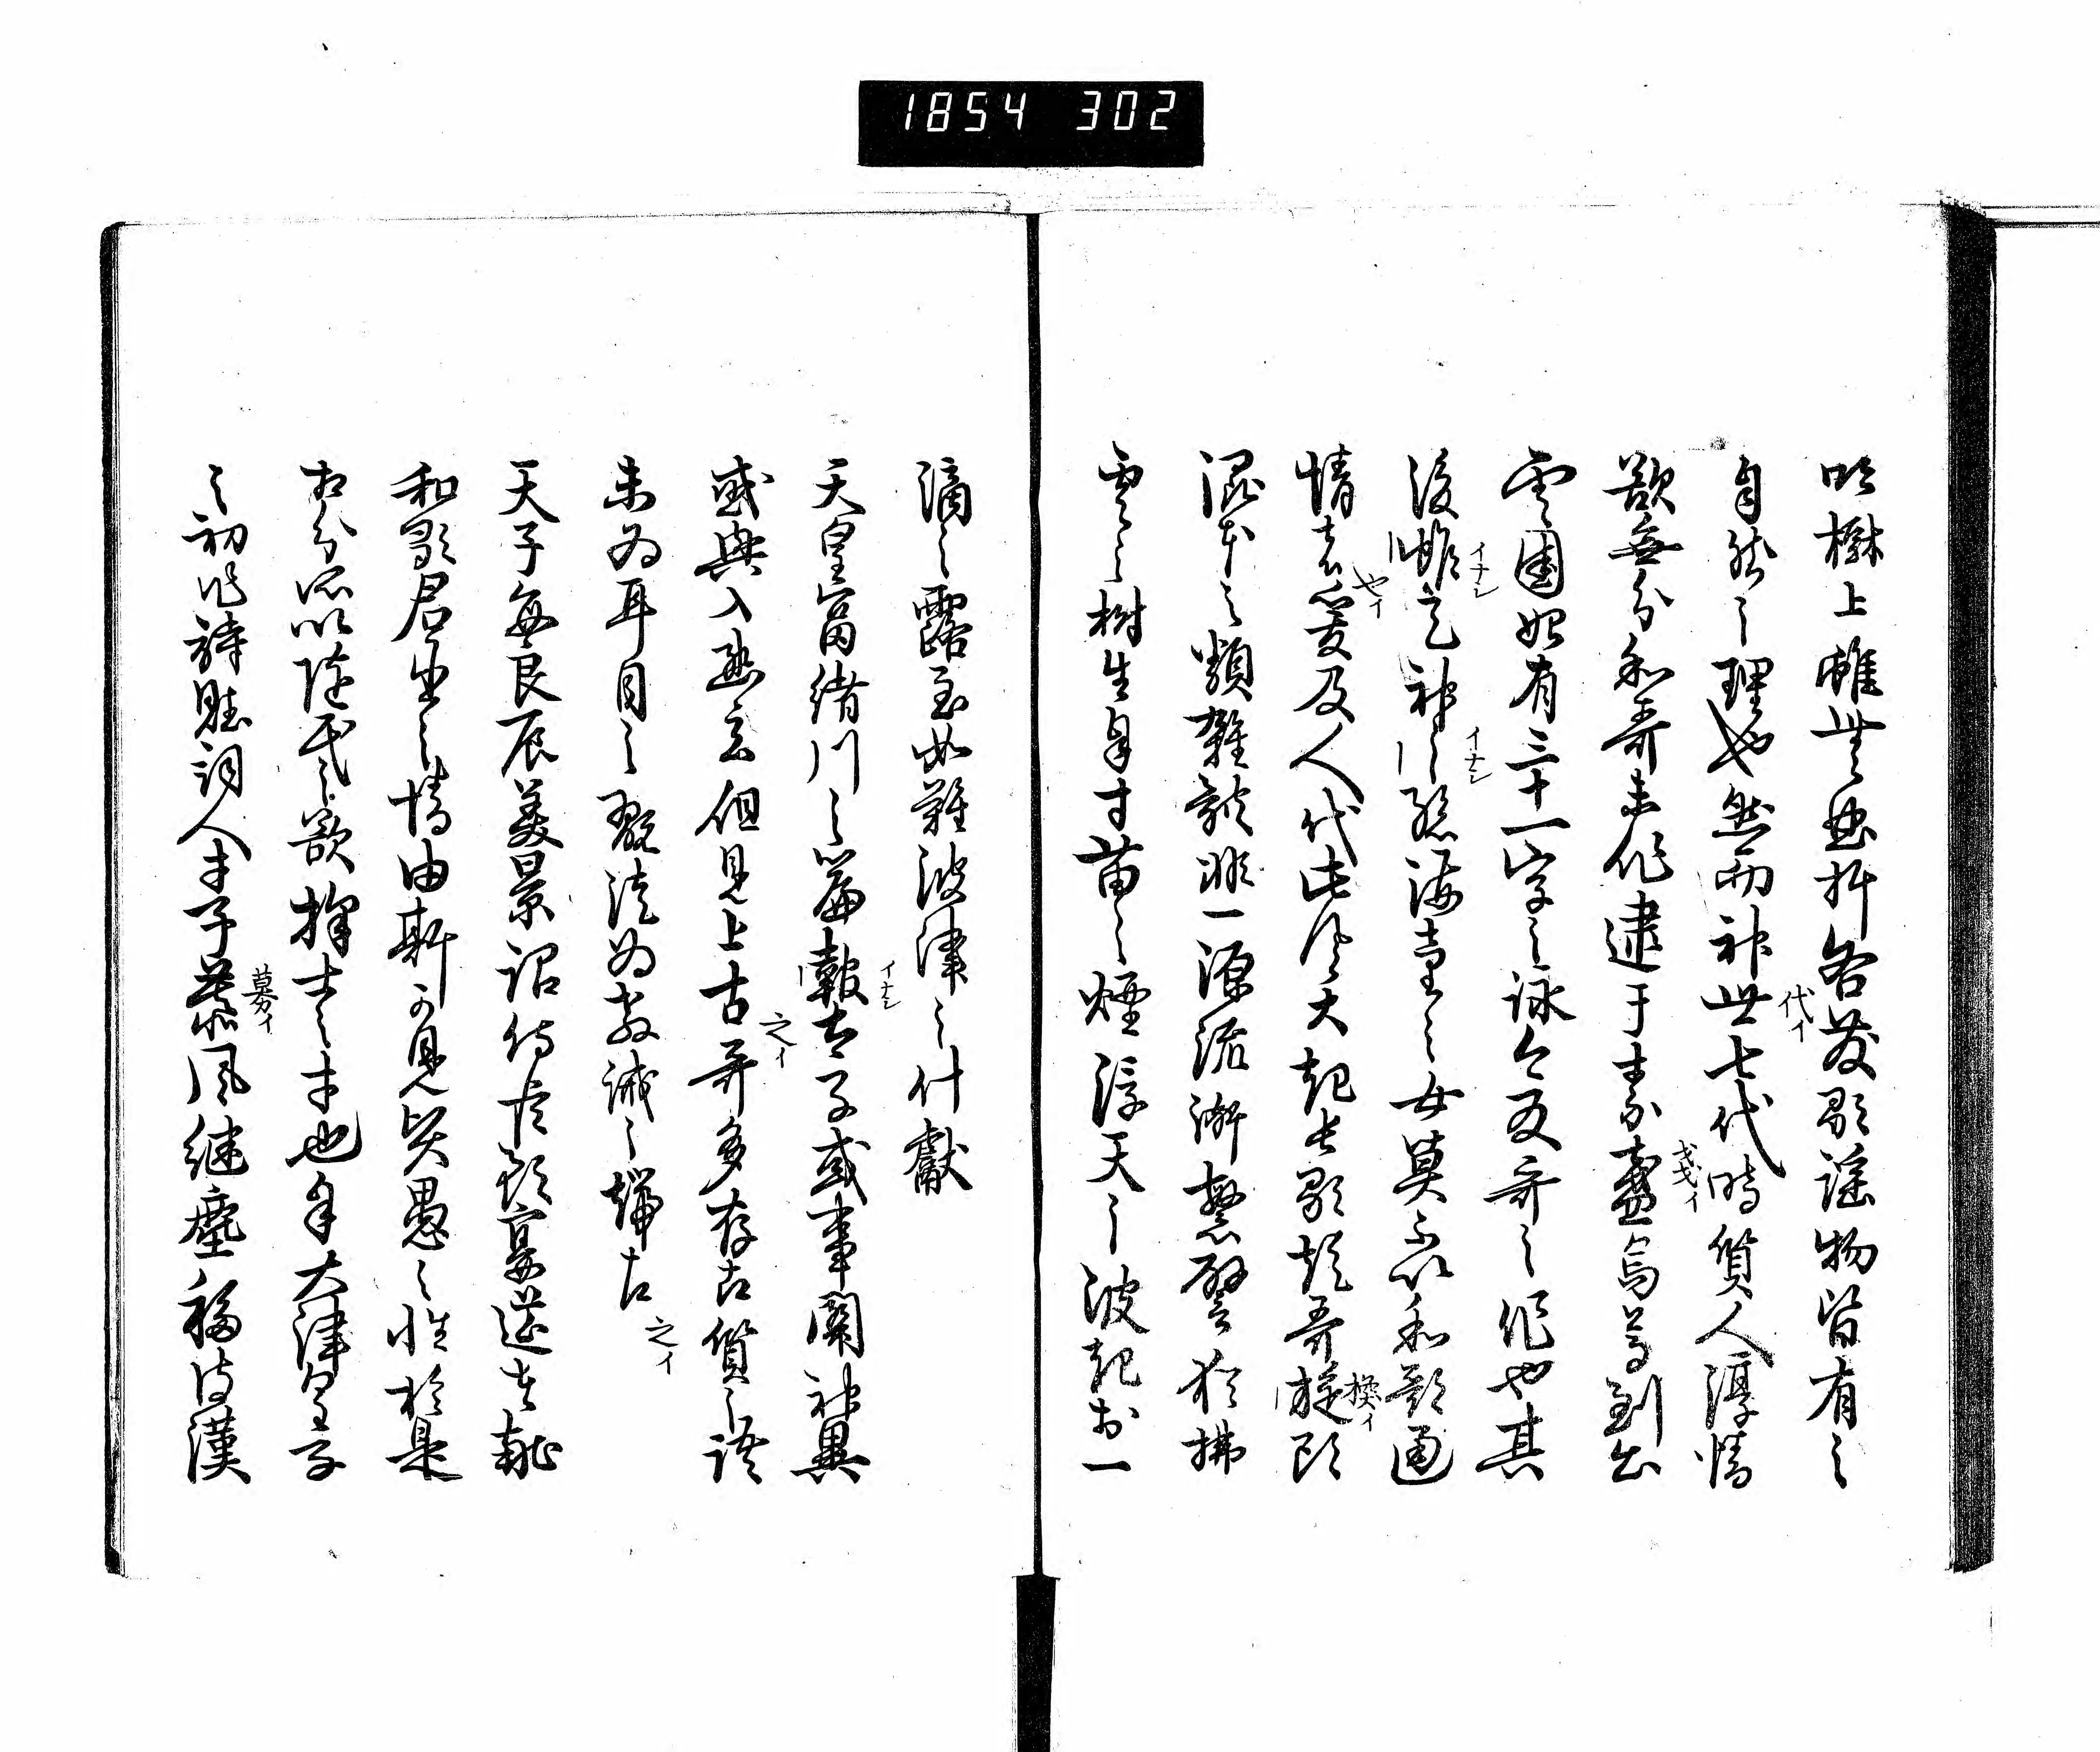 1854 302
吟樹上雖無曲折各發歌謡物皆有之
自然之理也然而神世七代時質人淳情
代イ
欲無分和哥未作逮于素盞烏尊到出
戔イ
雲国始有三十一字之詠今反哥之作也其
後雖天神之孫海童之女莫不以和歌通
イナシ
イナシ
情者爰及人代此風大起長歌短哥旋頭
やイ
換イ
混本之類雜躰非一源流漸繁譬猶拂
雲之樹生自寸苗之煙浮天之波起於一
滴之露至如難波津之什獻
天皇富緒川之篇報太子或事関神異
イナシ
或興入幽玄但見上古哥多存古質之語
之イ
未為耳目之翫徒為教誡之端古
之イ
天子毎良辰美景詔侍臣預宴筵者献
和歌君臣之情由斯可見賢愚之性於是
相分所以随民之欲擇士之才也自大津皇子
之初作詩賦詞人才子慕風継塵移彼漢
募イ